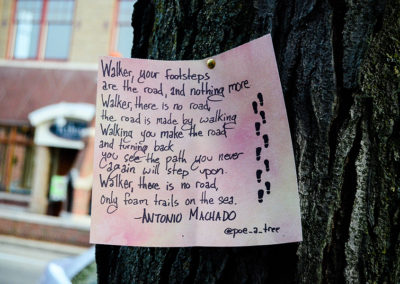 Walker, your footsteps
are the road, and nothing more
Walker, there is no road,
the road is made by walking
Walking you make the road
and turning back
you see the path you never
again will step upon.
Walker, there is no road,
only foam trails on the sea.
-ANTONIO MACHADO
@poe_a_tree